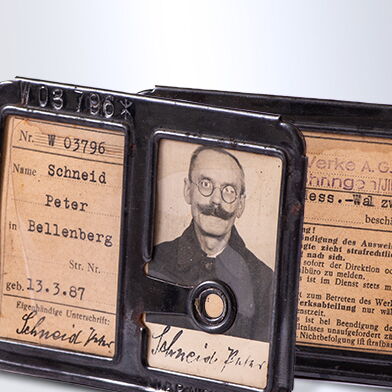 W 03 796*
Nr. W 03796
Name Schneid
Peter
in Bellenberg
Str. Nr.
geb. 13.3.87
Eigenhändige Unterschrift:
Schneid Peter
Schneid Peter
Werke A.G.
ess.-Wal zw
besch
ndigung des Auswei
ogie zieht strafrechtli
nach sich.
sofort der Direktion o
lbüro zu melden.
ist im Dienst stets m
igt zum Betreten des Wer
erksabteilung nur währe
enstzeit.
ist bei Beendigung de
itnisses unaufgefordert zu
Nichtbefolgung ist strafba